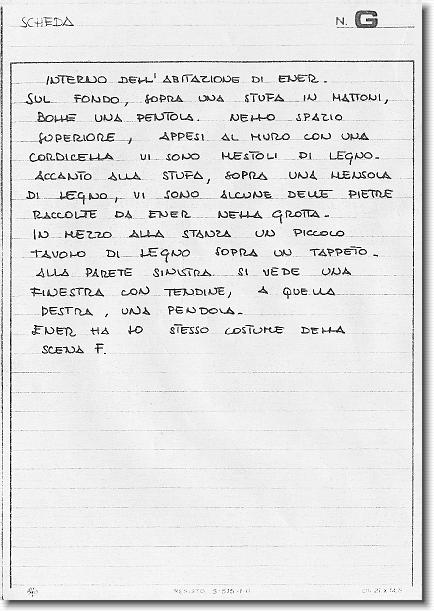 SCHEDA N. G
INTERNO DELL'ABITAZIONE DI ENER.
SUL FONDO, SOPRA UNA STUFA IN MATTONI,
BOLLE UNA PENTOLA. NELLO SPAZIO
SUPERIORE, APPESI AL MURO CON UNA
CORDICELLA VI SONO MESTOLI DI LEGNO.
ACCANTO ALLA STUFA, SOPRA UNA MENSOLA
DI LEGNO, VI SONO ALCUNE DELLE PIETRE
RACCOLTE DA ENER NELLA GROTTA.
IN MEZZO ALLA STANZA UN PICCOLO
TAVOLO DI LEGNO SOPRA UN TAPPETO.
ALLA PARETE SINISTRA SI VEDE UNA
FINESTRA CON TENDINE, A QUELLA
DESTRA, UNA PENDOLA.
ENER HA LO STESSO COSTUME DELLA
SCENA F.